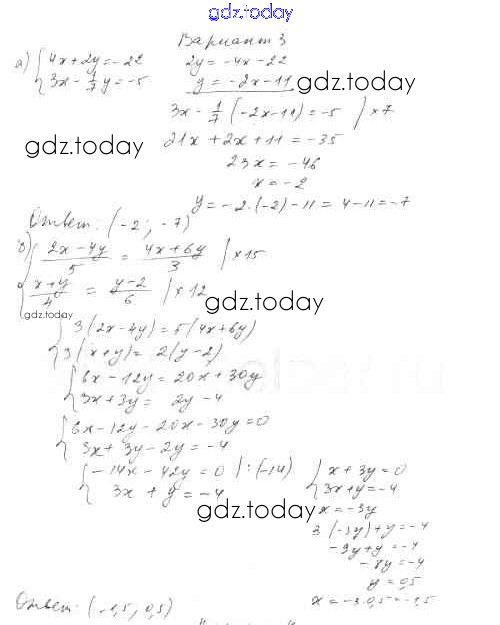 gdz.today
Вариант 3
а) { 4x + 2y = -22
3x - 1/7 y = -5
2y = -4x - 22
y = -2x - 11
gdz.today
3x - 1/7 (-2x - 11) = -5 | × 7
gdz.today
21x + 2x + 11 = -35
23x = -46
x = -2
y = -2·(-2) - 11 = 4 - 11 = -7
Ответ: (-2; -7)
б) { (2x - 4y)/5 = (4x + 6y)/3 | × 15
(x + y)/4 = (y - 2)/6 | × 12
gdz.today
gdz.today
{ 3(2x - 4y) = 5(4x + 6y)
3(x + y) = 2(y - 2)
{ 6x - 12y = 20x + 30y
3x + 3y = 2y - 4
{ 6x - 12y - 20x - 30y = 0
3x + 3y - 2y = -4
{ -14x - 42y = 0 | : (-14)
3x + y = -4
{ x + 3y = 0
3x + y = -4
gdz.today
x = -3y
3(-3y) + y = -4
-9y + y = -4
-8y = -4
y = 0,5
x = -3·0,5 = -1,5
Ответ: (-1,5, 0,5)